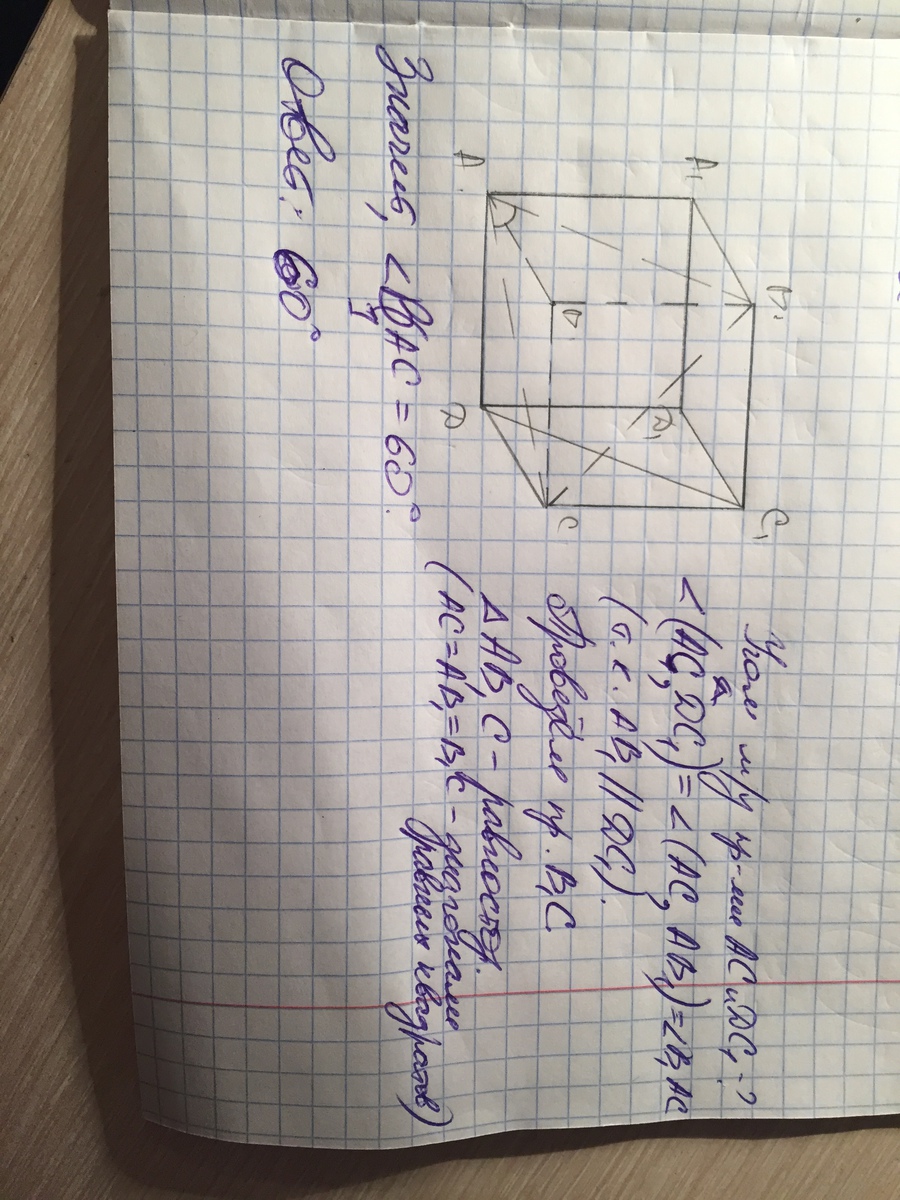 Угол м/у пр-ми AC и DC₁ - ?
∠(AC, DC₁) = ∠(AC, AB₁) = ∠B₁AC
(т.к. AB₁ || DC₁).
Проведём пр. B₁C
△AB₁C - равностор.
(AC = AB₁ = B₁C - диагонали
равных квадратов)
A₁
B₁
C₁
D₁
A
B
C
D
Значит, ∠B₁AC = 60°.
Ответ: 60°